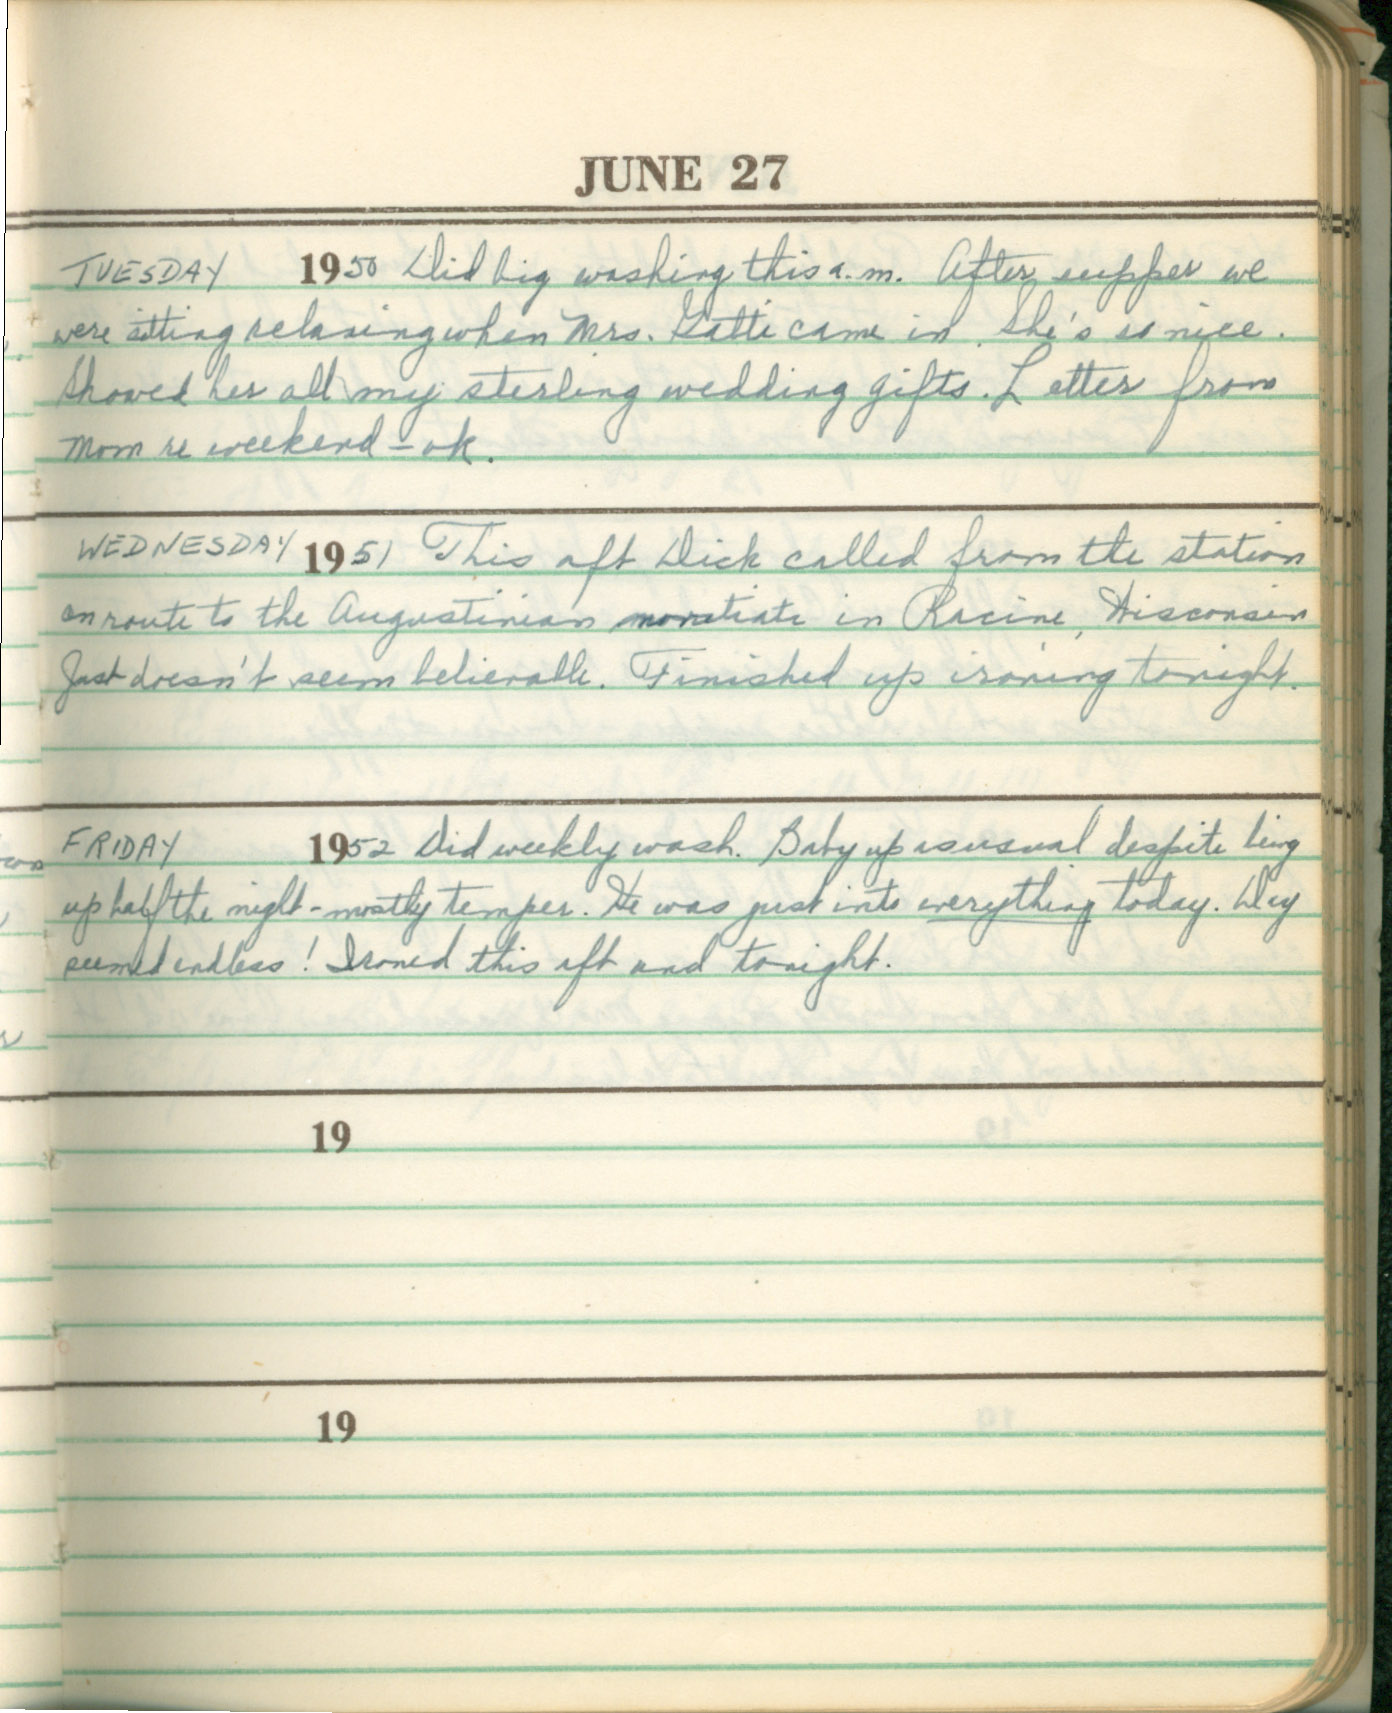 JUNE 27
TUESDAY 1950 Did big washing this a.m. After supper we
were sitting relaxing when Mrs. Gatti came in. She's so nice.
Showed her all my sterling wedding gifts. Letter from
Mom re weekend - ok.
WEDNESDAY 1951 This aft Dick called from the station
enroute to the Augustinian in Racine, Wisconsin
Just doesn't seem believable. Finished up ironing tonight.
FRIDAY 1952 Did weekly wash. Baby up as usual despite being
up half the night - mostly temper. He was just into everything today. Day
seemed endless! Ironed this aft and tonight.
19
19